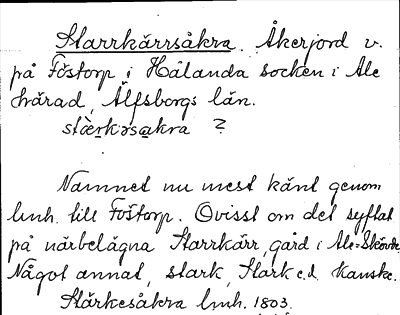 Starrkärrsåkra. Åkerjord v.
på Föstorp i Hålanda socken i Ale
härad, Älfsborgs län.
stærkəsakra ?
Namnet nu mest känt genom
lmh. till Föstorp. Ovisst om det syftat
på närbelägna Starrkärr, gård i Ale-Skövde.
Något annat, stark, Stärk e.d. kanske.
Stärkesåkra lmh. 1803.